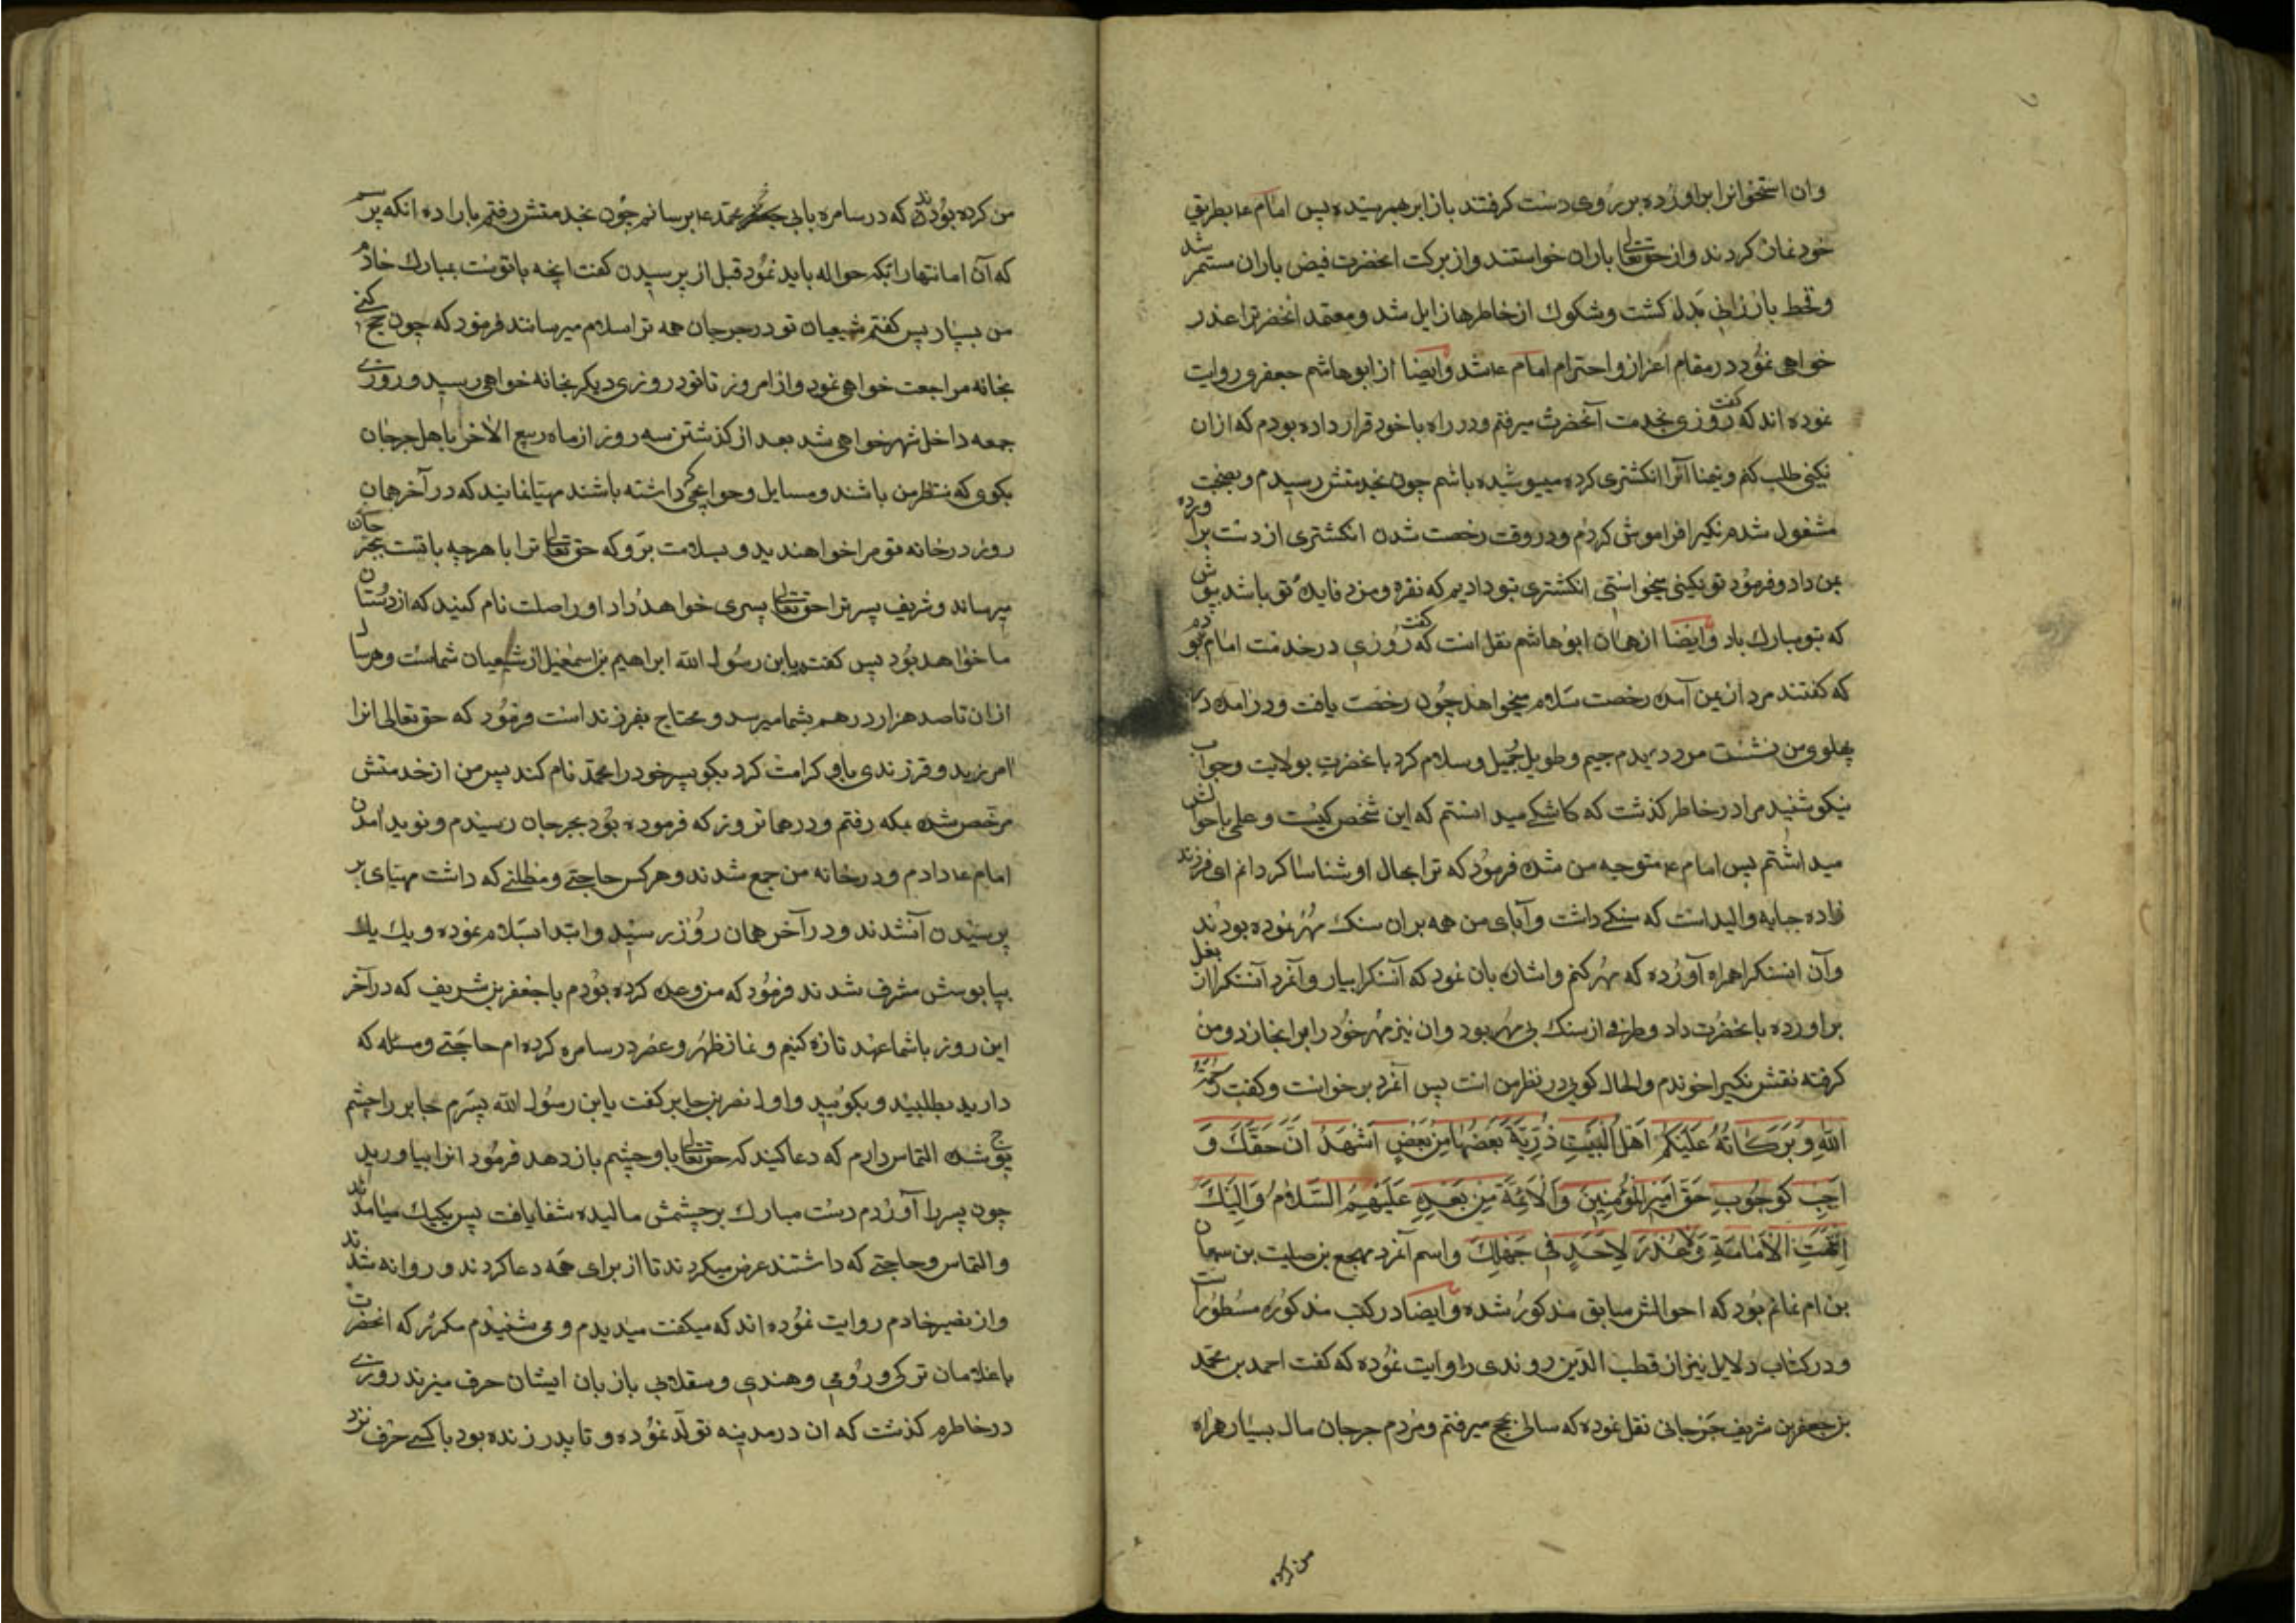 وان استخوانرا براورده بر روی دست کرفتند باز ابر بهم رسیده پس امام ع بطریق
خود نماز کردند و از حقتعالی باران خواستند و از برکت انحضرت فیض باران مستمر شد
و قحط بارزانی بدل کشت و شکوک از خاطرها زایل شد و معتمد انحضرترا عذر
خواهی نمود در مقام اعزاز و احترام امام ع شد وایضا از ابو هاشم جعفری روایت
نموده اند که گفت روزی بخدمت آنحضرت میرفتم و در راه با خود قرار داده بودم که ازان
نکینی طلب کنم و تیمنا آنرا انکشتری کرده میپوشیده باشم چون بخدمتش رسیدم و بصحبت
مشغول شدم نکیرا فراموش کردم و در وقت رخصت شدن انکشتری از دست براورده
بمن داد و فرمود تو نکینی میخواستی انکشتری بتو دادیم که نقره و مزد فایده تو باشد بپوش
که بتو مبارک باد وایضا از همان ابو هاشم نقل است که گفت روزی در خدمت امام بودم
که کفتند مرد از یمن آمده رخصت سلام میخواهد چون رخصت یافت و در آمده در
پهلوی من نشست مرد دیدم جیم و طویل جمیل و سلام کرد باعضرت بولایت و جواب
نیکو شنید مرا در خاطر کذشت که کاشکی میدانستم که این شخص کیست و علمی باحوالش
میداشتم پس امام ع متوجه من شده فرمود که ترا بحال او شناسا کردانم ای فرزند
زاده حبابه والبه است که سنکی داشت و آبای من همه بران سنک مهر نموده بودند
وآن اینستکه همراه آورده که مهر کنم و اشان بان نمود که آنسنکرا بیار و آنمرد آنسنکرا از بغل
براورده بانحضرت داد و طرفی از سنک بی مهر بود وان نیز مهر خود را بر انجا زد و من
کرفته نقش نکیرا خوندم و الحال کویی در نظر من است پس آنمرد برخواست و کفت رحمة
الله وَبَرَکاتُهُ عَلَیکُم اَهلَ البَیتِ ذُرِّیَّةً بَعضُها مِن بَعضٍ اَشهَدُ اَنَّ حَقَّکَ وَ
اجِب کَوُجُوبِ حَقِّ اَمیرِ المُؤمِنینَ وَالاَئِمَّةَ مِن بَعدِهِ عَلَیهِمُ السَّلامُ وَاِلَیکَ
انتَهَتِ الاَمامَةِ وَلاعُذرَ لِاَحَدٍ فی جَهلِکَ واسم آنمرد مهجع بن صلیت بن سمعان
بن ام غانم بود که احوالش سابق مذکور شده وایضا در کتب مذکوره مسطورات
و در کتاب دلایل نیز از قطب الدین روندی را وایت نموده که کفت احمد بن محمد
بن جعفر بن شریف جرجانی نقل نموده که سالی بحج میرفتم و مردم جرجان مال بسیار همراه
من کرده
من کرده بودند که در سامره بابی محمد ع برسانم چون بخدمتش رفتم باراده انکه پرسم
که آن امانتهارا بکه حواله باید نمود قبل از پرسیدن کفت انچه باتوست بمبارک خادم
من بسپار پس کفتم شیعیان تو در جرجان همه ترا سلام میرسانند فرمود که چون حج کنی
بخانه مراجعت خواهی نمود و از امروز تا نود روزی دیکر بخانه خواهی رسید و روزی
جمعه داخل شهر خواهی شد بعد از کذشتن سه روز از ماه ربیع الاخر باهل جرجان
بکوی که منتظر من باشند و مسایل و حوایجی که داشته باشند مهیا نمایند که در آخر همان
روز در خانه تو مرا خواهند دید و بسلامت برو که حقتعالی ترا با هرچه باتست بجرجان
میرساند و شریف پسر ترا حقتعالی پسری خواهد داد او را صلت نام کنید که از دوستان
ما خواهد بود پس کفتم یابن رسول الله ابراهیم بن اسمعیل از شیعیان شماست و هر سال
ازان تا صد هزار درهم بشما میرسد و محتاج بفرزند است فرمود که حق تعالی انرا
امرزید و فرزندی باو کرامت کرد بکو پسر خود را محمد نام کند پس من از خدمتش
مرخص شده بمکه رفتم و در همانروز که فرموده بود بجرجان رسیدم و نوید آمدن
امام ع دادم و در خانه من جمع شدند و هرکس حاجتی و مطلبی که داشت مهیای
پرسیدن آن شدند و در آخر همان روز رسید و ابتدا بسلام نموده و یک یک
بپابوسش مشرف شدند فرمود که من وعده کرده بودم با جعفر بن شریف که در آخر
این روز باشما عهد تازه کنیم و نماز ظهر و عصر در سامره کرده ام حاجتی و مسئله که
دارید بطلبید و بکویید و اول نصر بن جابر کفت یابن رسول الله پسرم جابر را چشم
پوچ شده التماس دارم که دعا کنید که حقتعالی باو چشم باز دهد فرمود انرا بیاورید
چون پسر را آوردم دست مبارک بر چشمش مالیده شفا یافت پس یکیک میامدند
والتماس و حاجتی که داشتند عرض میکردند تا از برای همه دعا کردند و روانه شدند
واز نصیر خادم روایت نموده اند که میکفت میدیدم و می شنیدم مکرر که انحضرت
با غلامان ترکی و رومی و هندی و سقلابی بازبان ایشان حرف میزند روزی
در خاطرم کذشت که ان در مدینه تولد نموده و تا پدر زنده بود با کسی حرف نزد